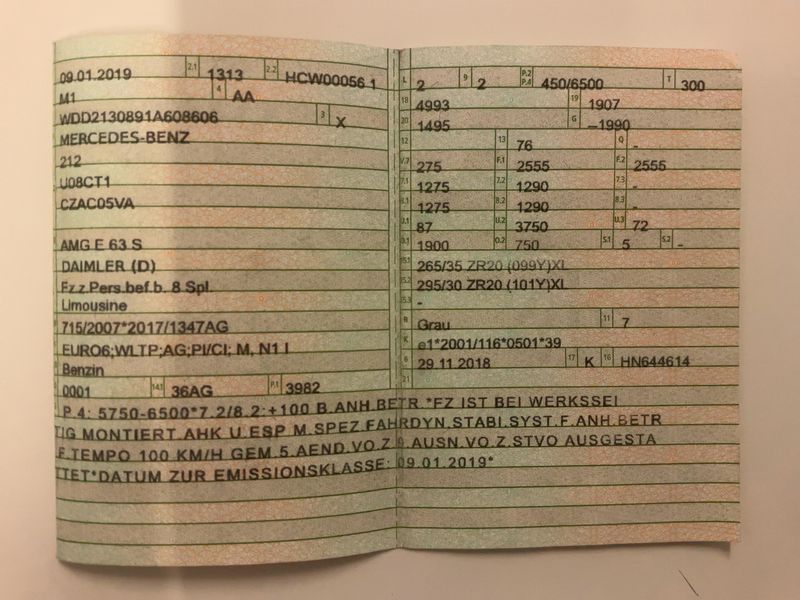 09.01.2019 2.1 1313 2.2 HCW00056 1
M1 4 AA
WDD2130891A608606 3 X
MERCEDES-BENZ
212
U08CT1
CZAC05VA
AMG E 63 S
DAIMLER (D)
Fz.z.Pers.bef.b. 8 Spl.
Limousine
715/2007*2017/1347AG
EURO6;WLTP;AG;PI/CI; M, N1 I
Benzin
0001 14.1 36AG P.1 3982
L 2 9 2 P.2 P.4 450/6500 T 300
18 4993 19 1907
20 1495 G –1990
12 13 76 Q -
V.7 275 F.1 2555 F.2 2555
7.1 1275 7.2 1290 7.3 -
8.1 1275 8.2 1290 8.3 -
U.1 87 U.2 3750 U.3 72
O.1 1900 O.2 750 S.1 5 S.2 -
15.1 265/35 ZR20 (099Y)XL
15.2 295/30 ZR20 (101Y)XL
15.3 -
R Grau 11 7
K e1*2001/116*0501*39
6 29.11.2018 17 K 16 HN644614
21
P.4: 5750-6500*7.2/8.2:+100 B.ANH.BETR.*FZ IST BEI WERKSSEI
TIG MONTIERT.AHK U.ESP M.SPEZ.FAHRDYN.STABI.SYST.F.ANH.BETR
.F.TEMPO 100 KM/H GEM.5.AEND.VO.Z.9.AUSN.VO.Z.STVO AUSGESTA
TTET*DATUM ZUR EMISSIONSKLASSE: 09.01.2019*